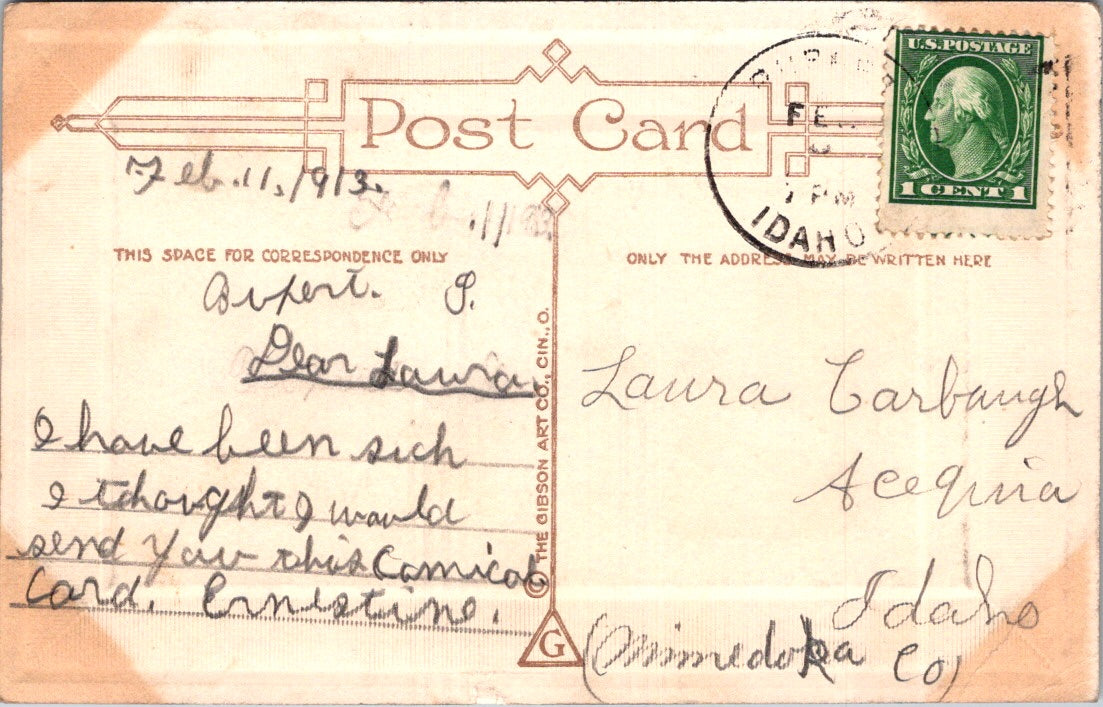 Post Card
U.S.POSTAGE
1 CENT 1
7 PM
IDAHO
Feb. 11, 1913.
THIS SPACE FOR CORRESPONDENCE ONLY
ONLY THE ADDRESS MAY BE WRITTEN HERE
Dear Laura.
I have been sich
I thought I would
send you this Comical
Card. Ernestine.
THE GIBSON ART CO., CIN., O.
G
Laura Carbaugh
Acequia
Idaho
(Minnedoka Co)